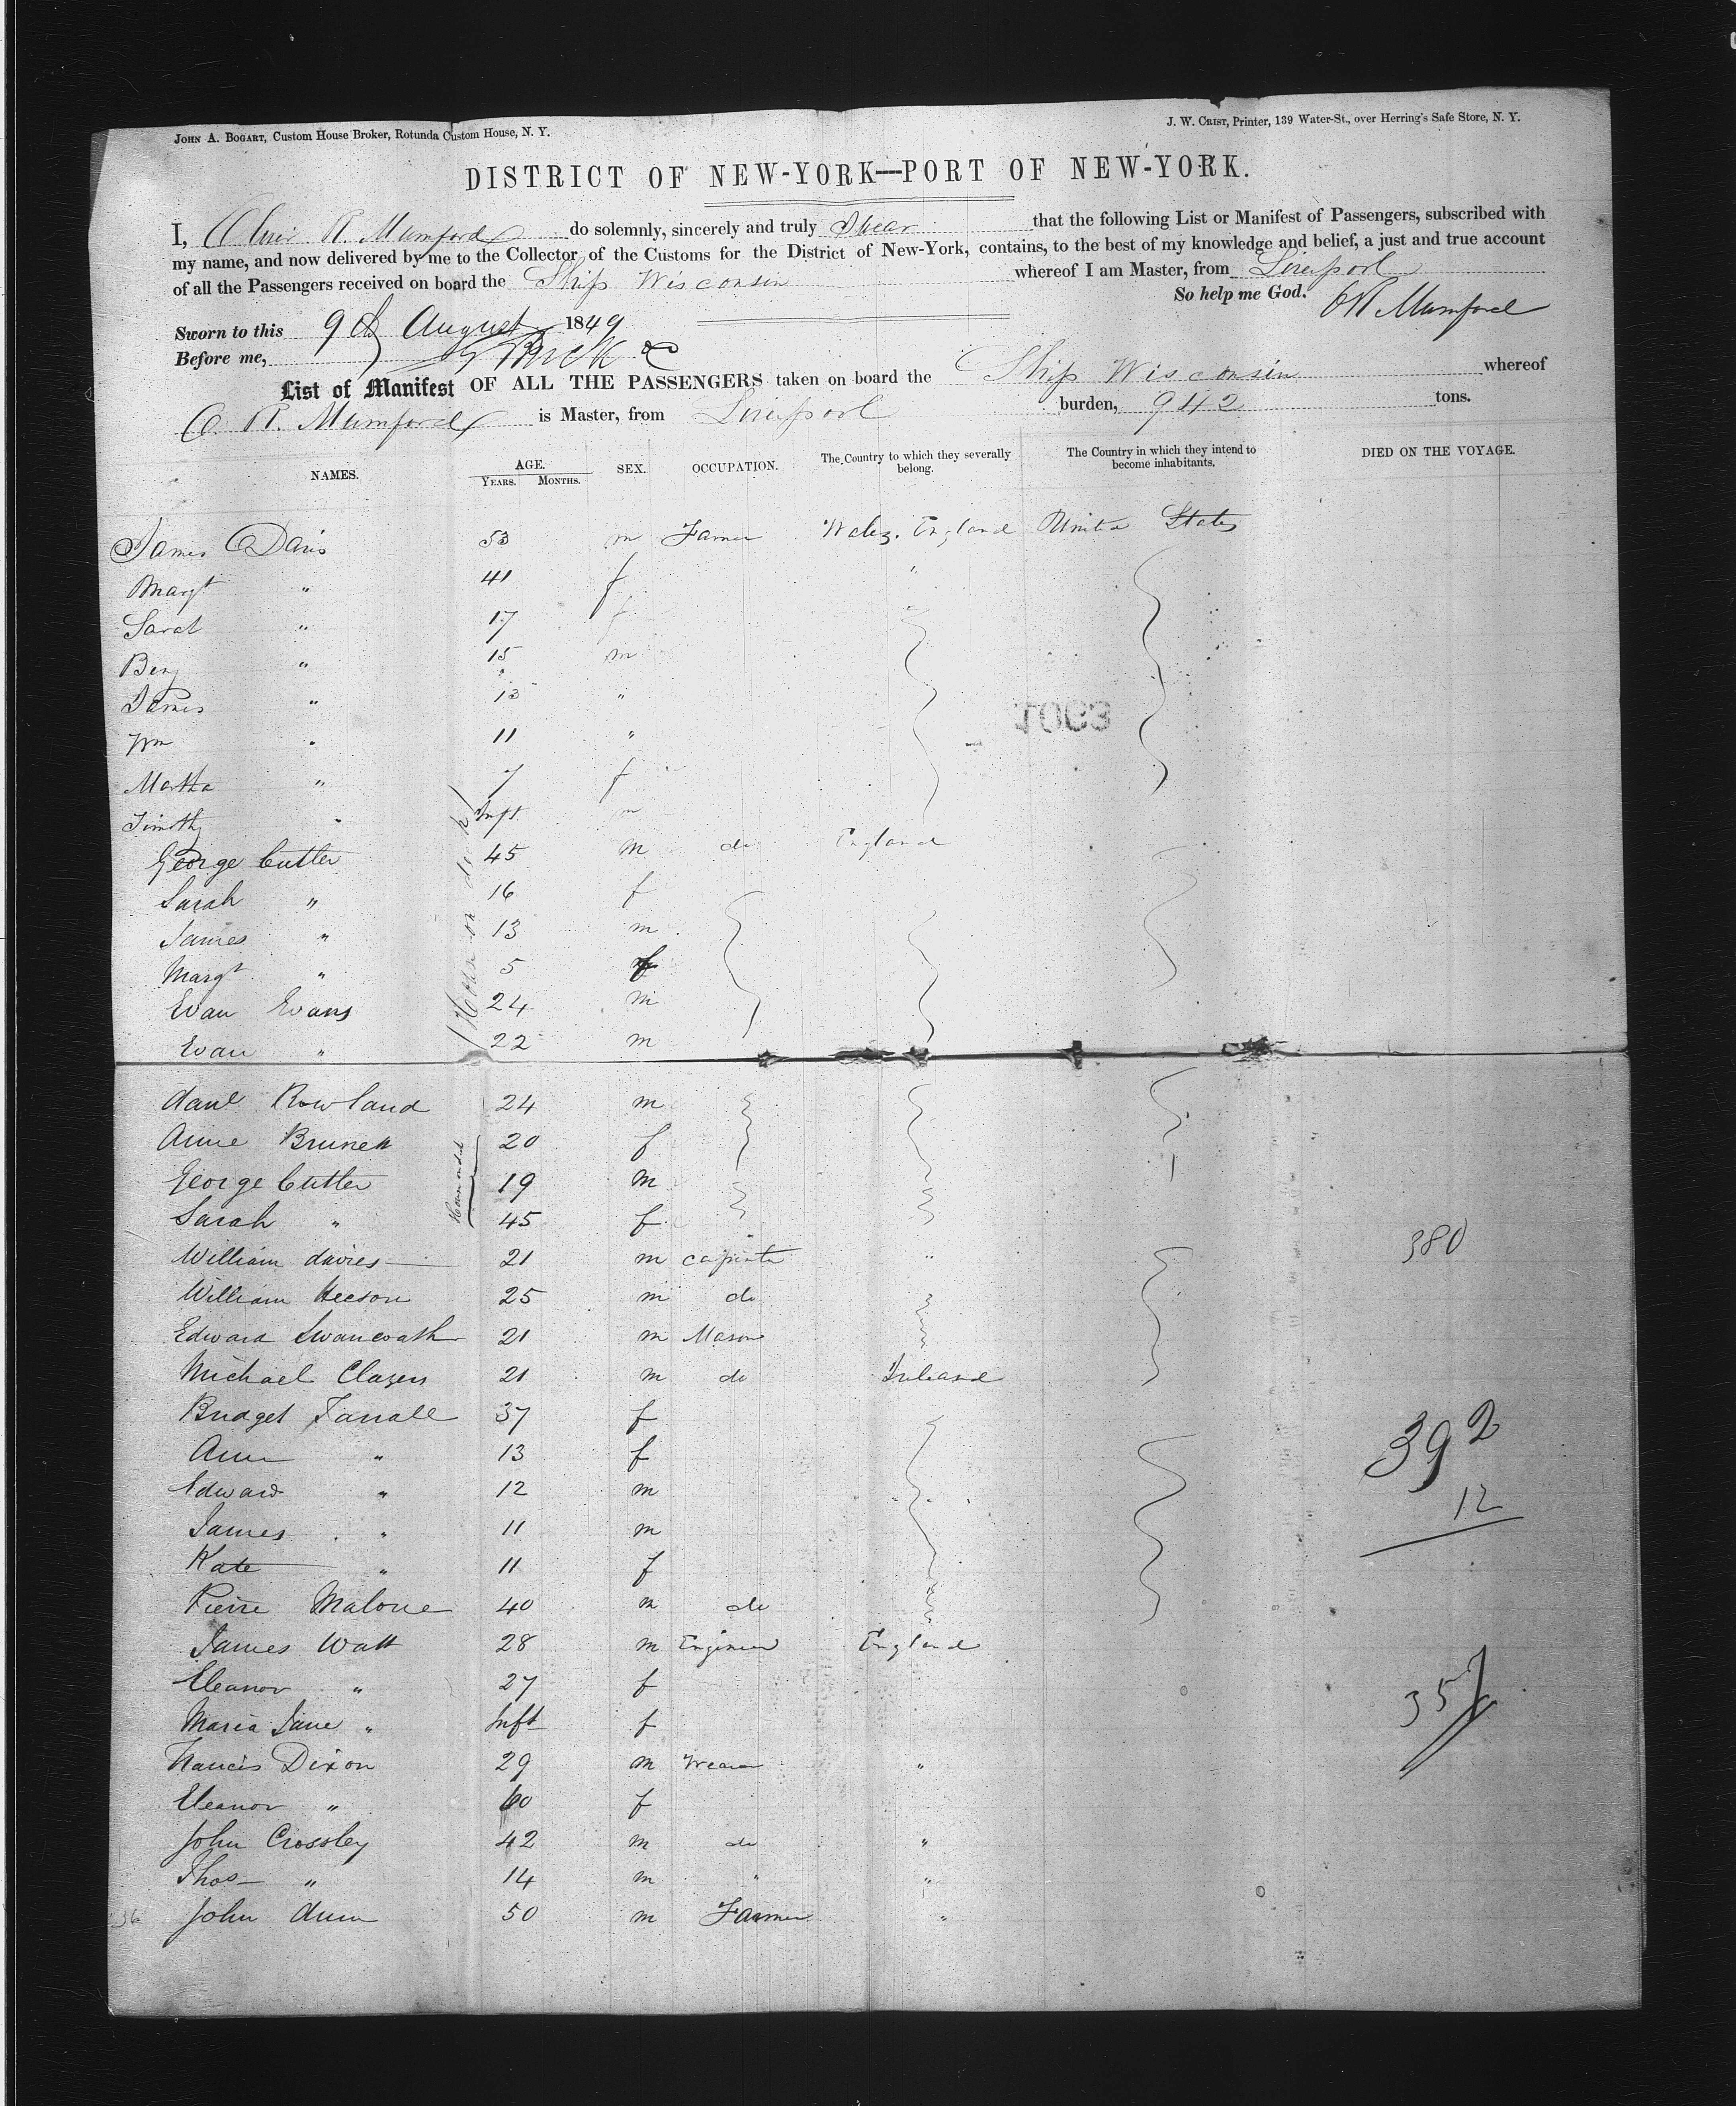 JOHN A. BOGART, Custom House Broker, Rotunda Custom House, N. Y.
J. W. CRIST, Printer, 139 Water-St., over Herring's Safe Store, N. Y.
DISTRICT OF NEW-YORK—PORT OF NEW-YORK.
I, R. Mumford do solemnly, sincerely and truly Swear that the following List or Manifest of Passengers, subscribed with
my name, and now delivered by me to the Collector of the Customs for the District of New-York, contains, to the best of my knowledge and belief, a just and true account
of all the Passengers received on board the Ship Wisconsin whereof I am Master, from Liverpool
So help me God.
O R Mumford
Sworn to this 9th August 1849
Before me,
List of Manifest OF ALL THE PASSENGERS taken on board the Ship Wisconsin whereof
O. R. Mumford is Master, from Liverpool burden, 942 tons.
NAMES. AGE. YEARS. MONTHS. SEX. OCCUPATION. The Country to which they severally belong. The Country in which they intend to become inhabitants. DIED ON THE VOYAGE.
James Davis 53 m Farmer Wales. England United States
Margt " 41 f "
Sarah " 17 f
Benj " 15 m
James " 13 "
Wm " 11 "
Martha " 7 f
Timothy " Inft m
George Cutler 45 m do England
Sarah " 16 f
James " 13 m
Margt " 5 f
Evan Evans 24 m
Evan " 22 m
Danl Rowland 24 m
Anne Brunett 20 f
George Cutler 19 m
Sarah " 45 f
William Davies 21 m Carpinter "
William Heeson 25 m do
Edward Swanwath 21 m Mason
Michael Clazen 21 m do Ireland
Bridget Farrall 37 f
Ann " 13 f
Edward " 12 m
James " 11 m
Kate " 11 f
Pierre Malone 40 m do
James Watt 28 m Engineer England
Eleanor " 27 f
Maria Jane " Inft f
Francis Dixon 29 m Weaver "
Eleanor " 60 f
John Crossley 42 m do "
Thos " 14 m " "
36 John Dunn 50 m Farmer "
380
392
12
357